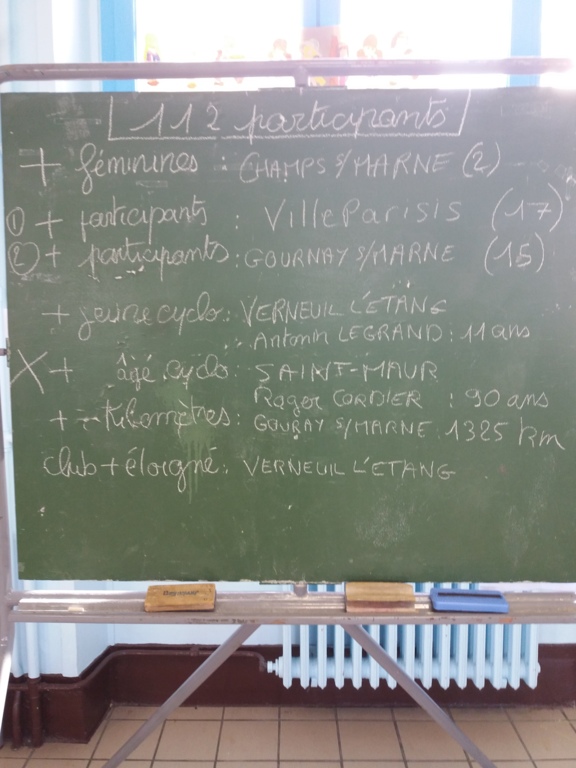 112 participants
+ féminines : CHAMPS S/MARNE (2)
① + participants : VilleParisis (17)
② + participants : GOURNAY S/MARNE (15)
+ jeune cyclo : VERNEUIL L'ETANG
Antonin LEGRAND : 11 ans
X + âgé cyclo : SAINT-MAUR
Roger CORDIER : 90 ans
+ Kilomètres : GOURAY S/MARNE 1325 km
club + éloigné : VERNEUIL L'ETANG